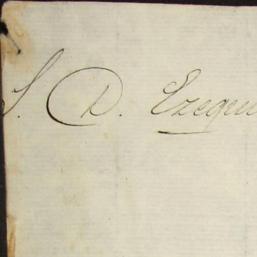 S. D. Ezequi